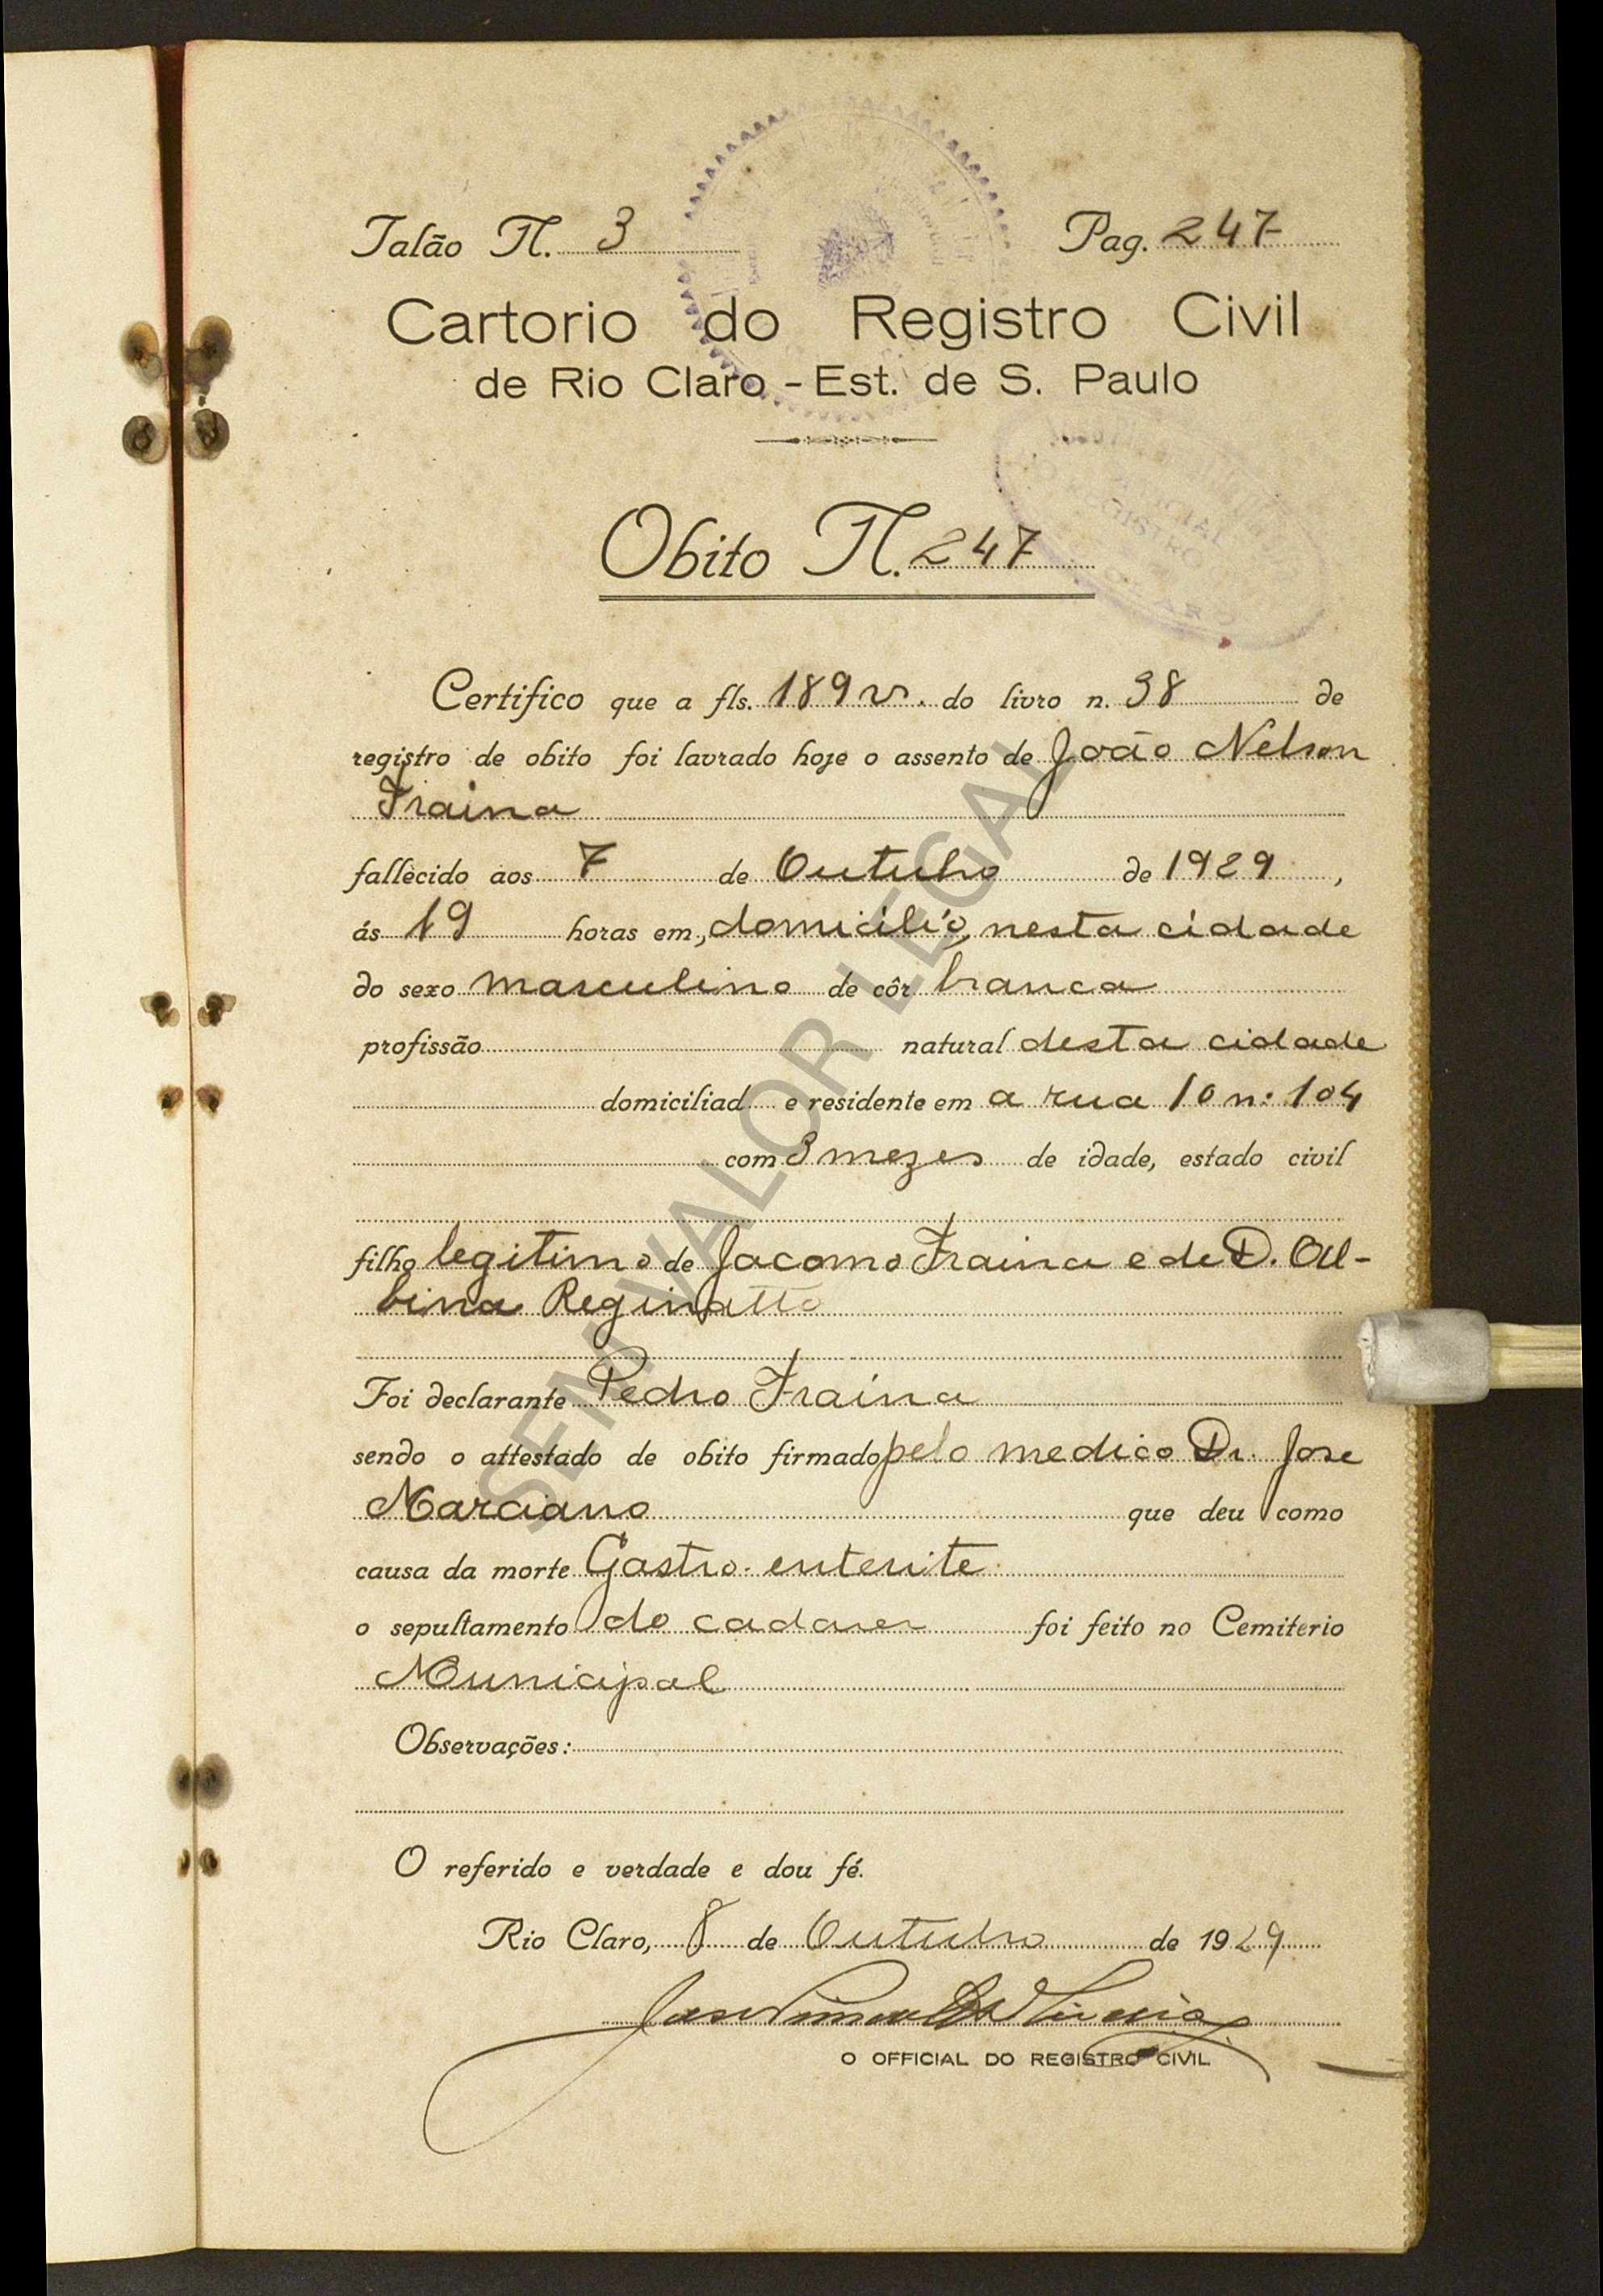 Talão N. 3 Pag. 247
Cartorio do Registro Civil
de Rio Claro - Est. de S. Paulo
Obito N. 247
Certifico que a fls. 189 v. do livro n. 38 de
registro de obito foi lavrado hoje o assento de João Nelson
Fraina
fallecido aos 7 de Outubro de 1929,
ás 19 horas em, domicilio, nesta cidade
do sexo masculino de côr branca
profissão natural desta cidade
domiciliad e residente em a rua 10 n: 104
com 3 mezes de idade, estado civil
filho legitimo de Jacomo Fraina e de D. Al-
bina Reginatto
Foi declarante Pedro Fraina
sendo o attestado de obito firmado pelo medico Dr. Jose
Marciano que deu como
causa da morte Gastro-enterite
o sepultamento do cadaver foi feito no Cemiterio
Municipal
Observações:
O referido e verdade e dou fé.
Rio Claro, 8 de Outubro de 1929
O OFFICIAL DO REGISTRO CIVIL
SEM VALOR LEGAL